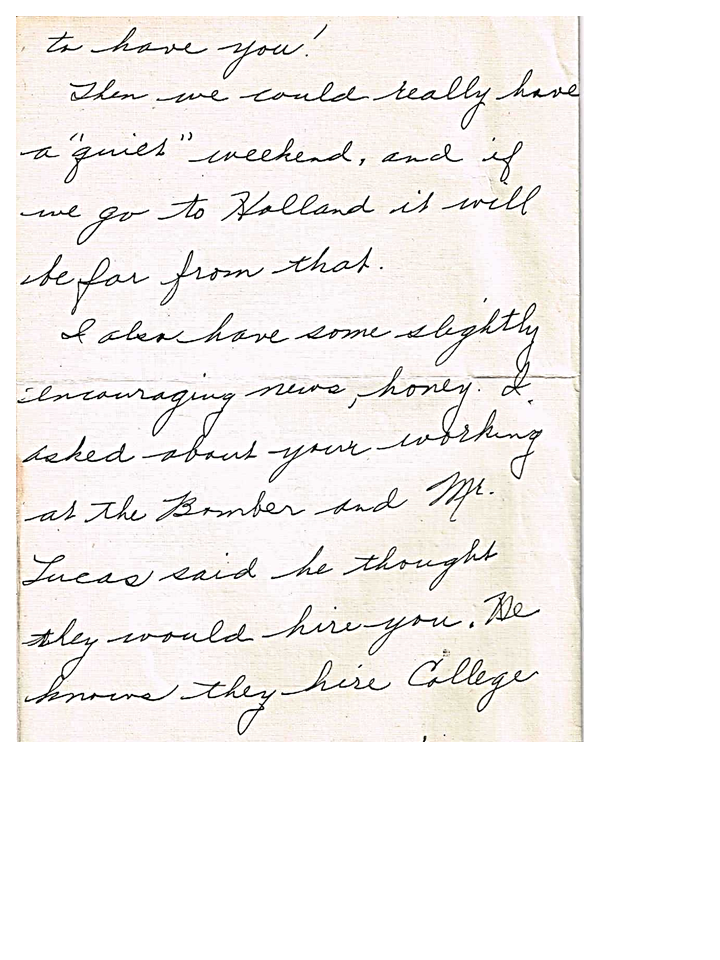 to have you!
Then we could really have
a "quiet" weekend, and if
we go to Holland it will
be far from that.
I also have some slightly
encouraging news, honey. I
asked about your working
at the Bomber and Mr.
Lucas said he thought
they would hire you. He
knows they hire College